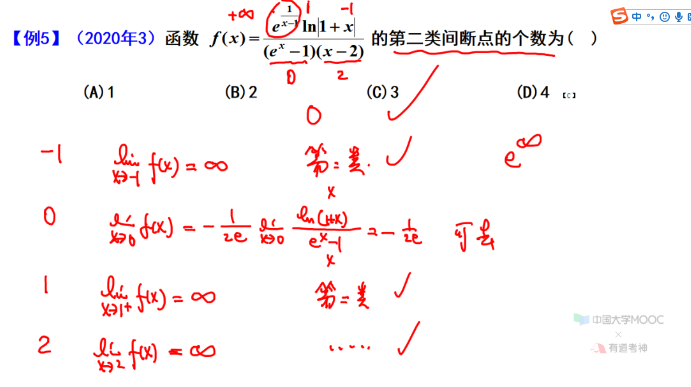 +∞ 1 -1
【例5】（2020年3）函数 f(x)=\frac{e^{\frac{1}{x-1}}ln|1+x|}{(e^x-1)(x-2)} 的第二类间断点的个数为( )
0 2
(A)1 (B)2 (C)3 (D)4 【C】
0 ✓
-1 lim_{x→-1} f(x) = ∞ 第二类. ✓ e^∞
0 lim_{x→0} f(x) = -\frac{1}{2e} lim_{x→0} \frac{ln(1+x)}{e^x-1} = -\frac{1}{2e} 可去
1 lim_{x→1+} f(x) = ∞ 第二类 ✓
2 lim_{x→2} f(x) = ∞ ..... ✓
中
中国大学MOOC
×
有道考神